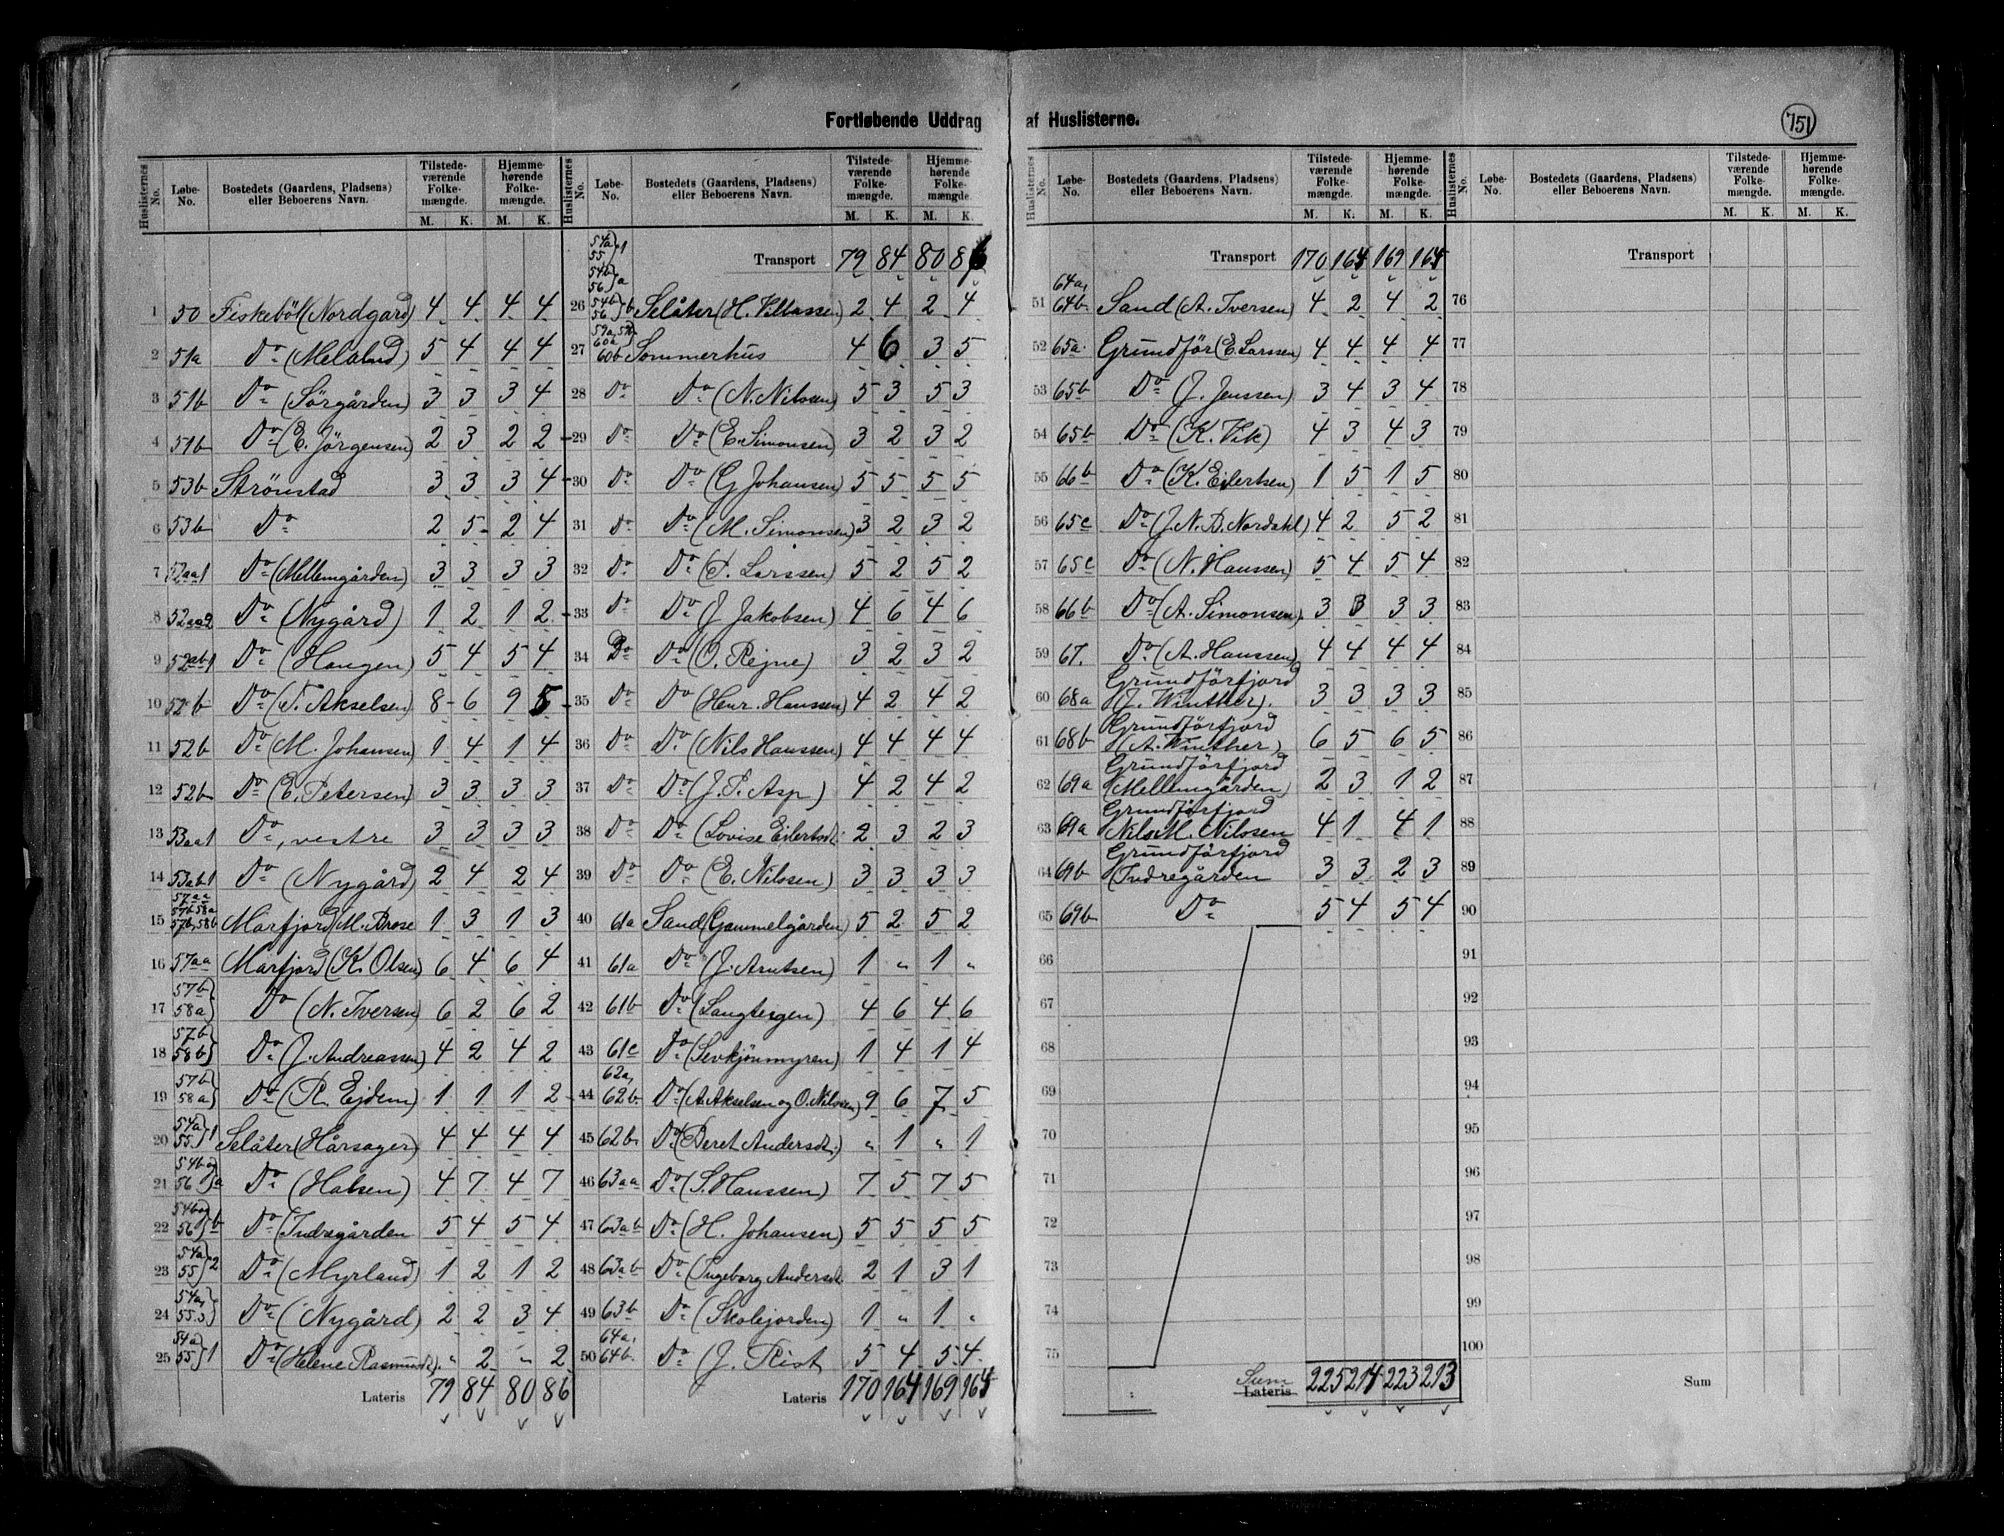 Fortløbende Uddrag af Huslisterne.
751
Huslisternes No. Løbe-No. Bostedets (Gaardens, Pladsens) eller Beboerens Navn. Tilstedeværende Folkemængde. M. K. Hjemmehørende Folkemængde. M. K.
1 50 Fiskeböl (Nordgård) 4 4 4 4
2 51a Do (Meland) 5 4 4 4
3 51b Do (Sörgården) 3 3 3 4
4 51b Do (E. Jörgensen) 2 3 2 2
5 53b Strönstad 3 3 3 4
6 53b Do 2 5 2 4
7 52aa1 Do (Mellemgården) 3 3 3 3
8 52aa2 Do (Nygård) 1 2 1 2
9 52ab1 Do (Haugen) 5 4 5 4
10 52b Do (T. Akselsen) 8 6 9 5
11 52b Do (M. Johansen) 1 4 1 4
12 52b Do (E. Petersen) 3 3 3 3
13 53aa1 Do, vestre 3 3 3 3
14 53ab1 Do (Nygård) 2 4 2 4
15 57aa 57b 58a 57b, 58b Morfjord (M. Brose 1 3 1 3
16 57aa Morfjord (K. Olsen) 6 4 6 4
17 57b 58a} Do (N. Iversen) 6 2 6 2
18 57b 58b} Do (J. Andreassen) 4 2 4 2
19 57b 58a} Do (R. Ejdem) 1 1 1 2
20 54a 55}1 Selåter (Hårsager) 4 4 4 4
21 54b og 56}a Do (Halsen) 4 7 4 7
22 54b og 56}b Do (Indregården 5 4 5 4
23 54a 55}2 Do (Myrland) 1 2 1 2
24 54a, 55.3} Do (Nygård) 2 2 3 4
25 54a 55}1 Do (Helene Rasmusdt). " 2 " 2
Lateris 79 84 80 86
Huslisternes No. Løbe-No. Bostedets (Gaardens, Pladsens) eller Beboerens Navn. Tilstedeværende Folkemængde. M. K. Hjemmehørende Folkemængde. M. K.
54a 55}1 54b 56}a Transport 79 84 80 86
26 54b 56}b Selåter (H. Villassen) 2 4 2 4
27 60a 60b Sommerhus 4 6 3 5
28 Do Do (N. Nilssen) 5 3 5 3
29 Do Do (E. Simonsen) 3 2 3 2
30 Do Do (G Johansen) 5 5 5 5
31 Do Do (M. Simonsen) 3 2 3 2
32 Do Do (P. Larssen) 5 2 5 2
33 Do Do (J Jakobsen) 4 6 4 6
34 Do Do (O. Rejne) 3 2 3 2
35 Do Do (Henr. Hanssen 4 2 4 2
36 Do Do (Nils Hanssen) 4 4 4 4
37 Do Do (J. P. Asp) 4 2 4 2
38 Do Do (Lovise Eilertsdt. 2 3 2 3
39 Do Do (E. Nilssen) 3 3 3 3
40 61a Sand (Gammelgården) 5 2 5 2
41 61a Do (J. Arntsen) 1 " 1 "
42 61b Do (Langteigen) 4 6 4 6
43 61c Do (Levkjönmyren) 1 4 1 4
44 62a, 62b. Do (A. Akselsen og O. Nilssen) 9 6 7 5
45 62b. Do (Beret Andersdt.) " 1 " 1
46 63aa Do (S. Hanssen) 7 5 7 5
47 63ab Do (H. Johansen) 5 5 5 5
48 63ab Do (Ingeborg Andersdt 2 1 3 1
49 63b Do (Skolejorden) 1 " 1 "
50 64a, 64b. Do (J. Rist 5 4 5 4
Lateris 170 164 169 164
Huslisternes No. Løbe-No. Bostedets (Gaardens, Pladsens) eller Beboerens Navn. Tilstedeværende Folkemængde. M. K. Hjemmehørende Folkemængde. M. K.
Transport 170 164 169 164
51 64a, 64b. Sand (A. Iversen) 4 2 4 2
52 65a. Grundför (E. Larssen) 4 4 4 4
53 65b Do (J. Jenssen) 3 4 3 4
54 65b Do (K. Vik) 4 3 4 3
55 66b Do (K. Eilertsen) 1 5 1 5
56 65c Do (J. N. B. Nordahl) 4 2 5 2
57 65c Do (N. Hanssen) 5 4 5 4
58 66b Do (A. Simonsen) 3 3 3 3
59 67. Do (A. Hanssen) 4 4 4 4
60 68a Grundförfjord (J. Winther). 3 3 3 3
61 68b Grundförfjord (A. Winther) 6 5 6 5
62 69a Grundförfjord (Mellemgården) 2 3 1 2
63 69a Grundförfjord Nils M. Nilssen 4 1 4 1
64 69b Grundförfjord (Indregården 3 3 2 3
65 69b Do 5 4 5 4
66
67
68
69
70
71
72
73
74
75
Sum Lateris 225 214 223 213
Huslisternes No. Løbe-No. Bostedets (Gaardens, Pladsens) eller Beboerens Navn. Tilstedeværende Folkemængde. M. K. Hjemmehørende Folkemængde. M. K.
Transport
76
77
78
79
80
81
82
83
84
85
86
87
88
89
90
91
92
93
94
95
96
97
98
99
100
Sum